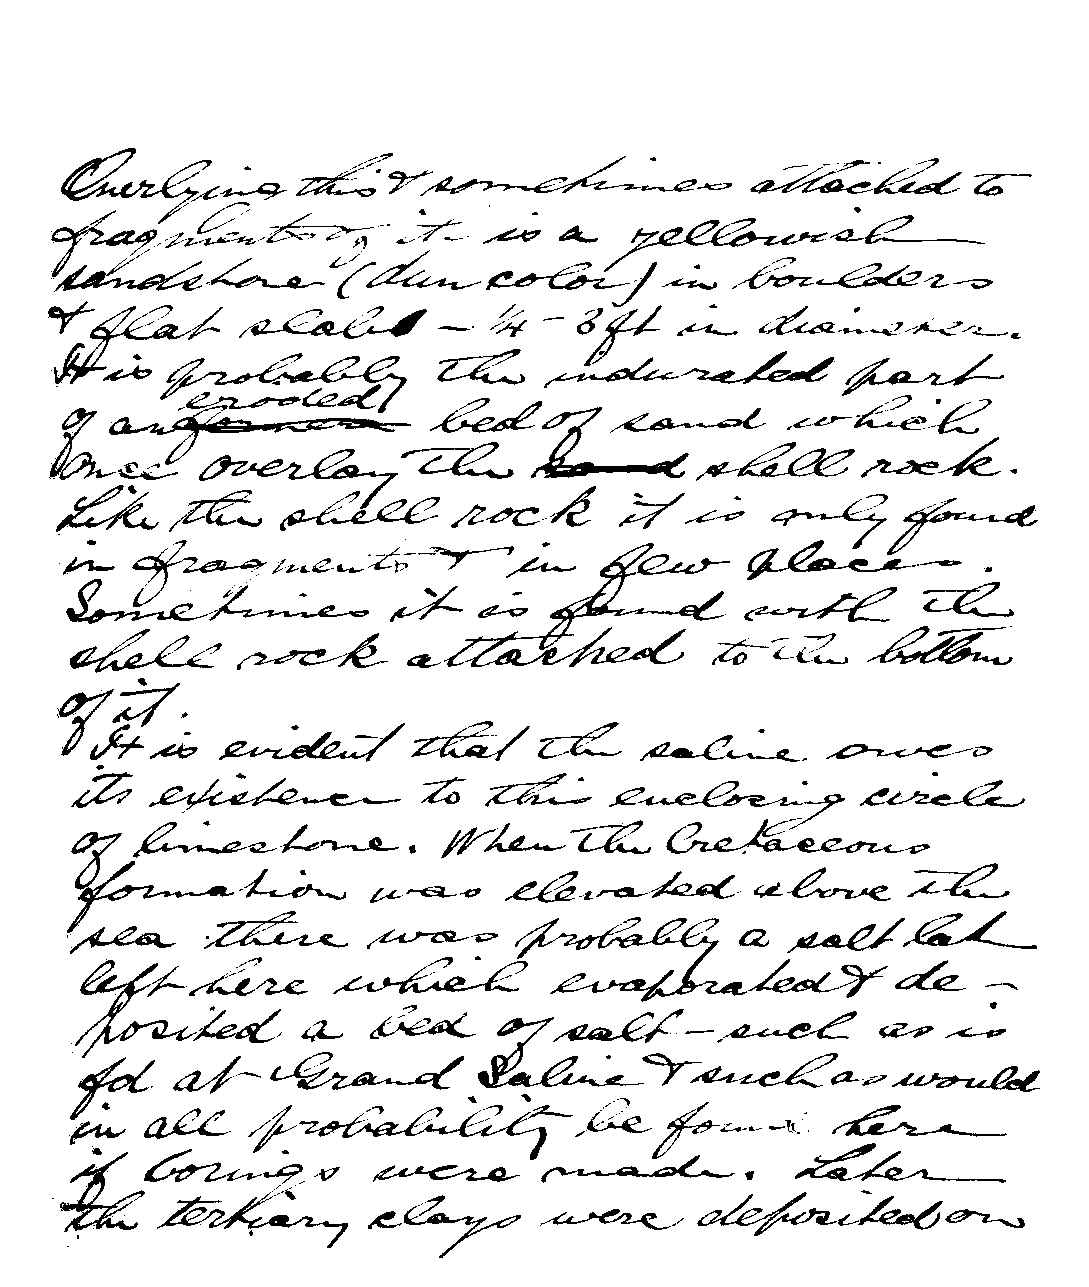 Overlying this & sometimes attached to
fragments of it is a yellowish
sandstone (dun color) in boulders
& flat slabs – ¼ – 3 ft in diameter.
It is probably the indurated part
of an eroded former bed of sand which
once overlay the sand shell rock.
Like the shell rock it is only found
in fragments & in few places.
Sometimes it is found with the
shell rock attached to the bottom
of it.
It is evident that the saline owes
its existence to this enclosing circle
of limestone. When the Cretaceous
formation was elevated above the
sea there was probably a salt lak
left here which evaporated & de-
posited a bed of salt – such as is
fd at Grand Saline & such as would
in all probability be found here
if borings were made. Later
the tertiary clays were deposited on